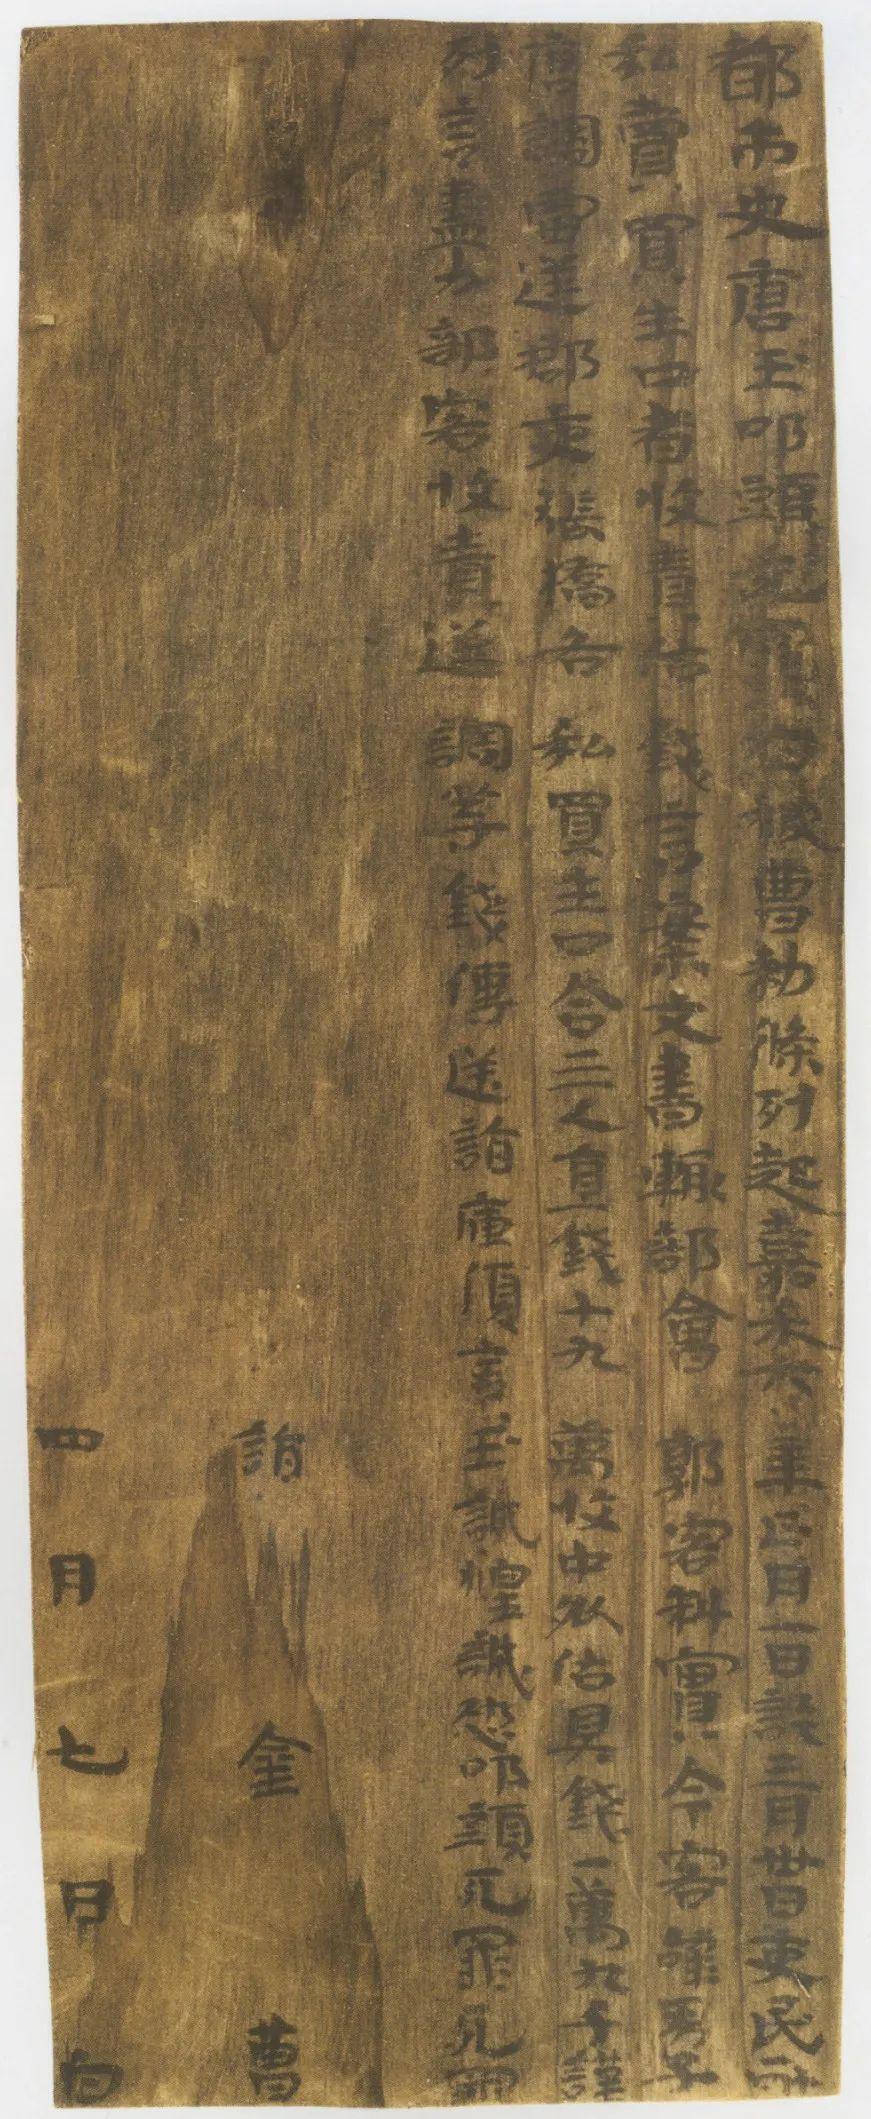 都市史唐玉叩頭死罪白被曹勅條列起嘉禾六年正月一日訖三月卅日吏民所
私賣買生口者收責估錢言案文書輒部會郭客料實今客辭男子
唐調雷逆郡吏張橋各私買生口合三人直錢十九萬收中外估具錢一萬九千謹
列言盡力部客收責送調等錢傳送詣庫復言玉誠惶誠恐叩頭死罪死罪
詣金曹
四月七日白